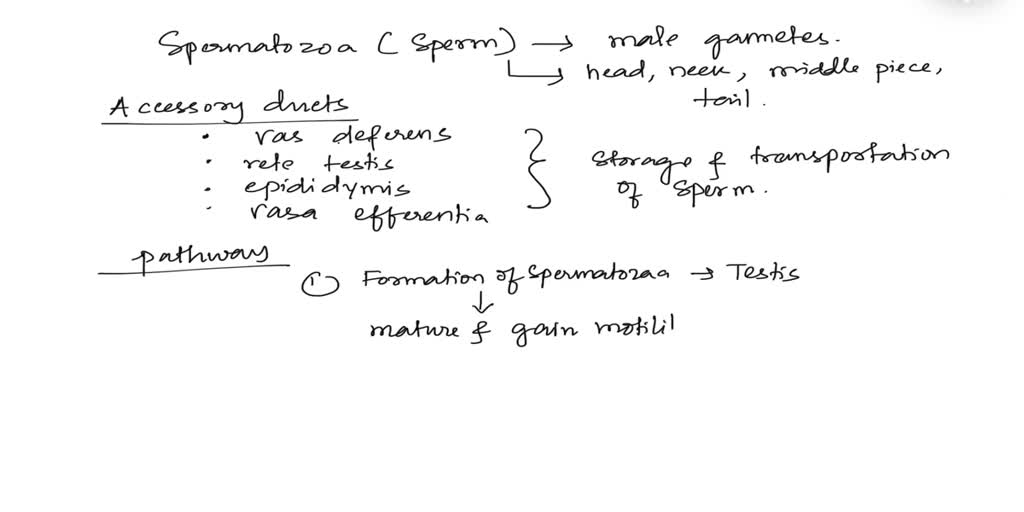 Spermatozoa (Sperm) → male gametes.
↳ head, neck, middle piece,
tail.
Accessory ducts
• vas deferens
• rete testis
• epididymis
• vasa efferentia
} storage & transportation
of sperm.
pathway
① Formation of spermatozoa → Testis
↓
mature & gain motilil